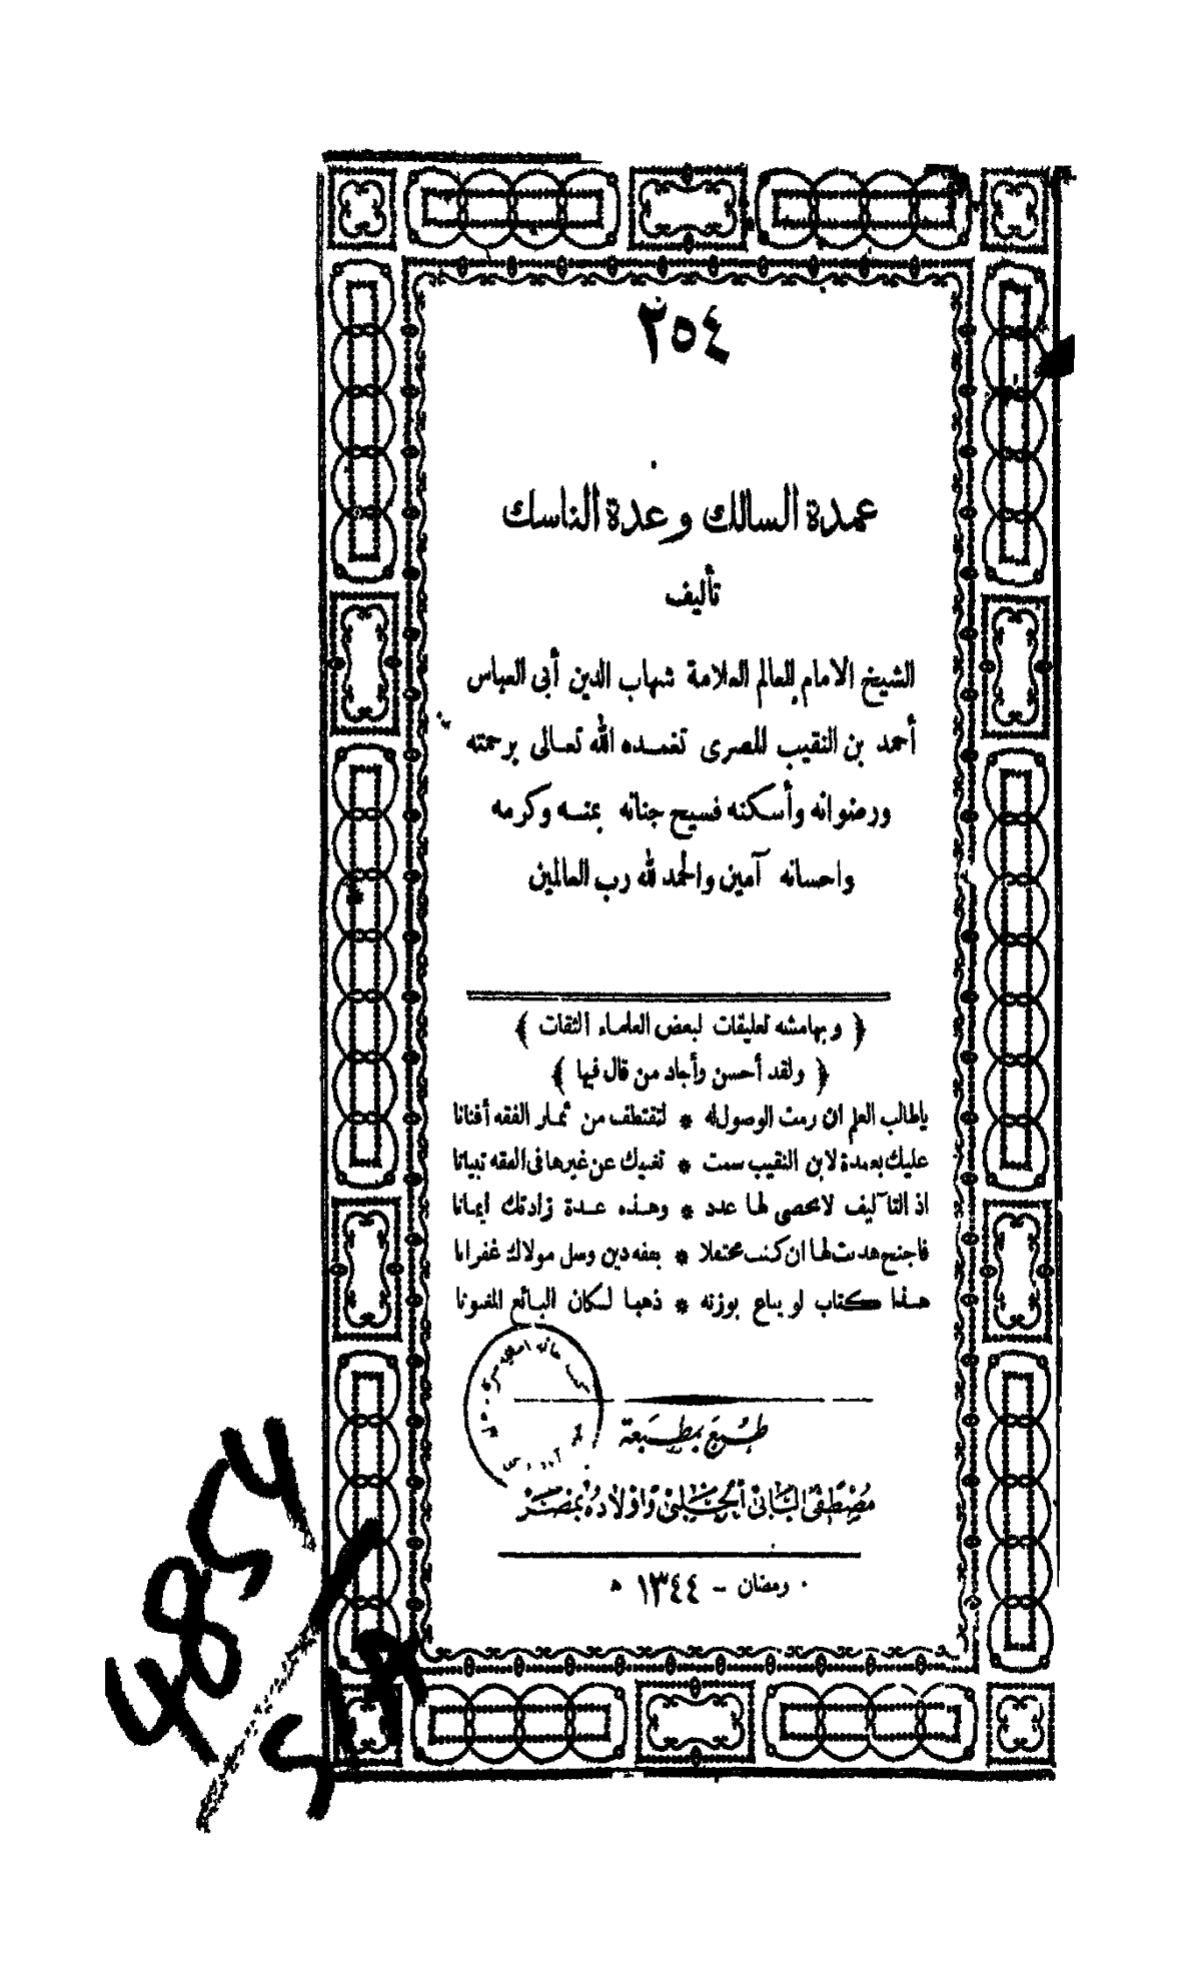 ٢٥٤
عمدة السالك وعدة الناسك
تأليف
الشيخ الامام العالم العلامة شهاب الدين أبى العباس
أحمد بن النقيب المصرى تغمده الله تعالى برحمته
ورضوانه وأسكنه فسيح جناته بمنه وكرمه
واحسانه آمين والحمد لله رب العالمين
﴿ وبهامشه تعليقات لبعض العلماء الثقات ﴾
﴿ ولقد أحسن وأجاد من قال فيها ﴾
ياطالب العلم ان رمت الوصول له * لتقتطف من ثمار الفقه أفنانا
عليك بعمدة لابن النقيب سمت * تغنيك عن غيرها فى الفقه تبيانا
اذ التآليف لا تحصى لها عدد * وهذه عدة زادتك ايمانا
فاجنح هديت لها ان كنت محتفلا * بفقه دين وسل مولاك غفرانا
هذا كتاب لو يباع بوزنه * ذهبا لكان البائع المغبونا
طبع بمطبعة
مصطفى البابى الحلبى وأولاده بمصر
رمضان - ١٣٤٤ ه
4854